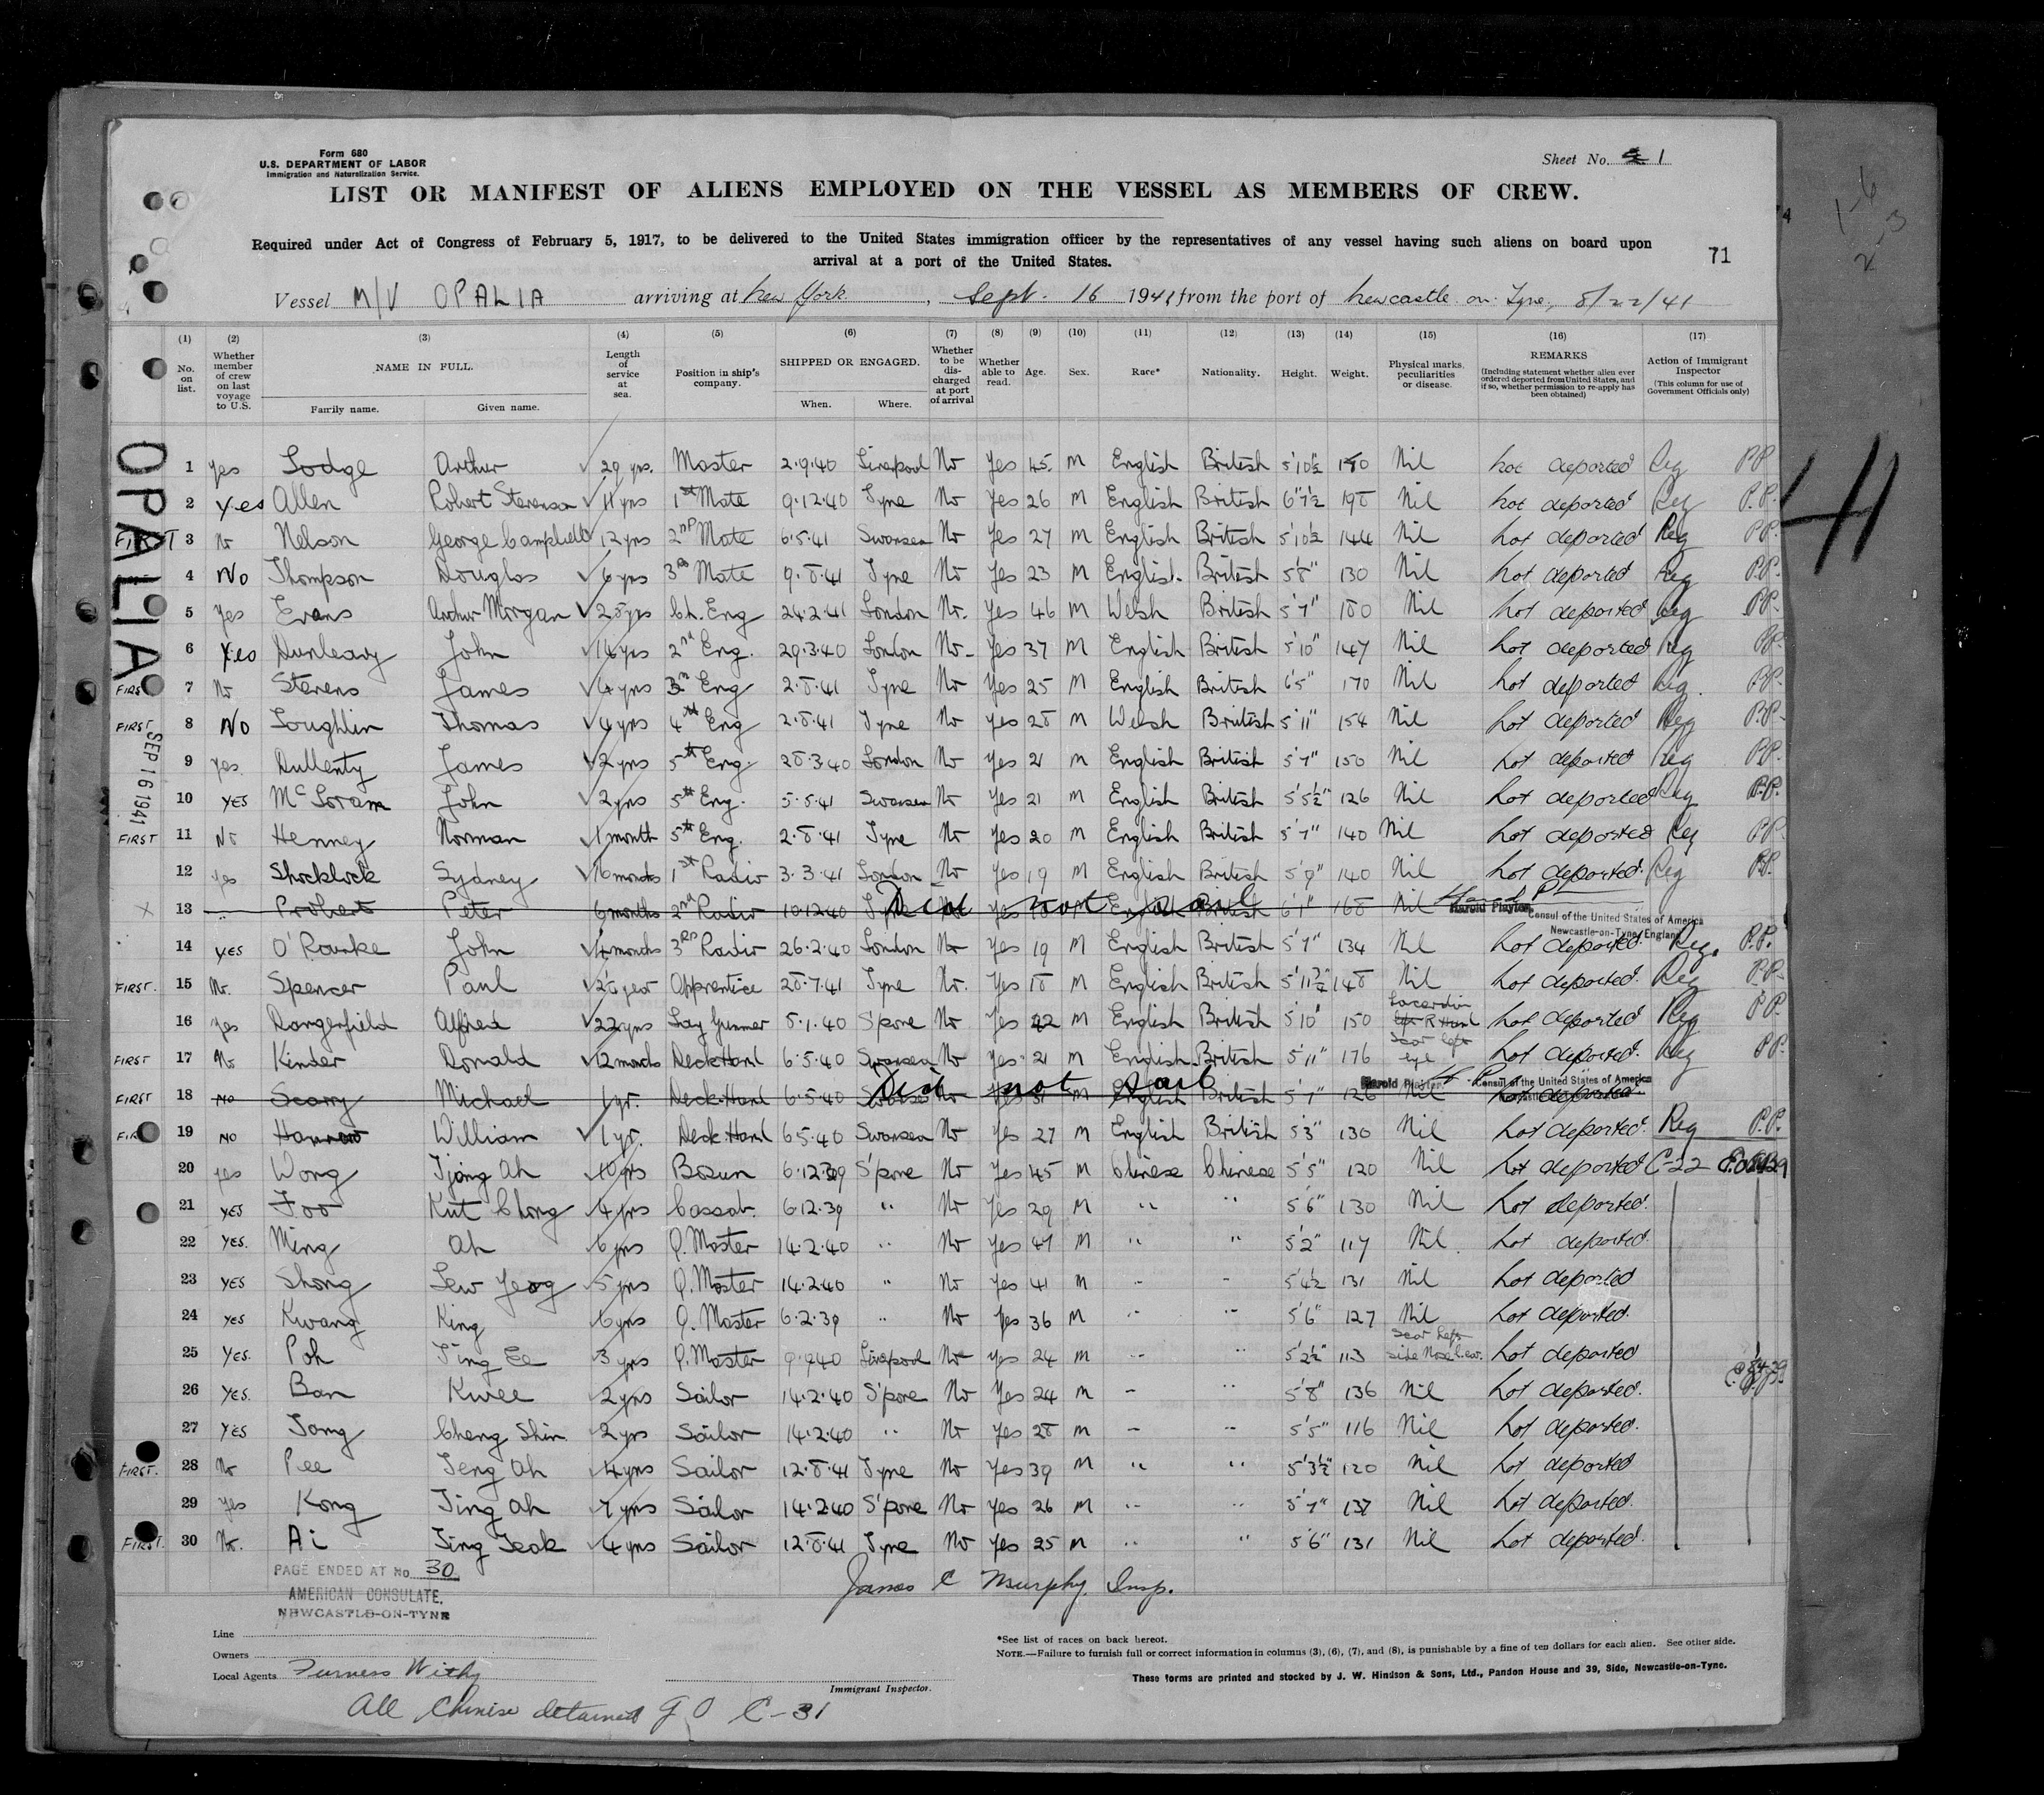 Form 680
U.S. DEPARTMENT OF LABOR
Immigration and Naturalization Service.
Sheet No. 1
LIST OR MANIFEST OF ALIENS EMPLOYED ON THE VESSEL AS MEMBERS OF CREW.
Required under Act of Congress of February 5, 1917, to be delivered to the United States immigration officer by the representatives of any vessel having such aliens on board upon
arrival at a port of the United States.
71
Vessel M/V OPALIA arriving at New York, Sept. 16 1941 from the port of Newcastle on Tyne, 8/22/41
(1) (2) (3) (4) (5) (6) (7) (8) (9) (10) (11) (12) (13) (14) (15) (16) (17)
No. on list. Whether member of crew on last voyage to U.S. NAME IN FULL. Family name. Given name. Length of service at sea. Position in ship's company. SHIPPED OR ENGAGED. When. Where. Whether to be discharged at port of arrival Whether able to read. Age. Sex. Race* Nationality. Height. Weight. Physical marks, peculiarities or disease. REMARKS (Including statement whether alien ever ordered deported from United States, and if so, whether permission to re-apply has been obtained) Action of Immigrant Inspector (This column for use of Government Officials only)
OPALIA
SEP 16 1941
1 yes Lodge Arthur 29 yrs. Master 2.9.40 Liverpool No Yes 45 M English British 5'10½ Nil Not deported Reg P.P.
2 Yes Allen Robert Stevenson 11 yrs 1st Mate 9.12.40 Tyne No Yes 26 M English British 198 Nil Not deported Reg P.P.
FIRST 3 No Nelson George Campbell 12 yrs 2nd Mate 6.5.41 Swansea No Yes 27 M English British 5'10½ 144 Nil Not deported Reg P.P.
4 No Thompson Douglas 6 yrs 3rd Mate 9.8.41 Tyne No Yes 23 M English British 5'8" 130 Nil Not deported Reg P.P.
5 Yes Evans Arthur Morgan 28 yrs Ch. Eng 24.2.41 London No. Yes 46 M Welsh British 5'7" 180 Nil Not deported Reg P.P.
6 Yes Dunleavy John 16 yrs 2nd Eng. 29.3.40 London No Yes 37 M English British 5'10" 147 Nil Not deported Reg P.P.
FIRST 7 No Stevens James 4 yrs 3rd Eng 2.8.41 Tyne No Yes 25 M English British 6'5" 170 Nil Not deported Reg. P.P.
FIRST 8 No Loughlin Thomas 4 yrs 4th Eng 2.8.41 Tyne No yes 28 M Welsh British 5'11" 154 Nil Not deported Reg P.P.
9 Yes Dullenty James 2 yrs 5th Eng. 28.3.40 London No Yes 21 M English British 5'7" 150 Nil Not deported Reg P.P.
10 YES John 2 yrs 5th Eng. 5.5.41 Swansea No Yes 21 M English British 5'5½" 126 Nil Not deported Reg P.P.
FIRST 11 No Henney Norman 1 month 5th Eng. 2.8.41 Tyne No Yes 20 M English British 5'7" 140 Nil Not deported Reg P.P.
12 yes Shocklock Sydney 6 months 1st Radio 3.3.41 London No Yes 19 M English British 5'9" 140 Nil Not deported. Reg P.P.
13 Probert Peter 6 months 2nd Radio 10.12.40 Tyne Did not sail English British 6'1" 168 Nil Harold Playter Consul of the United States of America
Newcastle-on-Tyne, England
14 YES O'Rourke John 4 months 3rd Radio 26.2.40 London No Yes 19 M English British 5'7" 134 Nil Not deported. Reg. P.P.
FIRST. 15 No. Spencer Paul Apprentice 28.7.41 Tyne No. Yes 18 M English British 148 Nil Not deported. Reg P.P.
16 Yes Dangerfield Alfred 22 yrs Lay Gunner 5.1.40 S'pore No Yes M English British 5'10" 150 R Hand Not deported Reg P.P.
FIRST 17 No Kinder Donald 12 months Deck Hand 6.5.40 Swansea No Yes 21 M English British 5'11" 176 Scar left eye Not deported. Reg P.P.
FIRST 18 NO Scarry Michael 1 yr. Deck Hand 6.5.40 Swansea Did not sail English British 5'7" 126 Nil Harold Playter Consul of the United States of America Not deported
FIRST 19 NO William 1 yr. Deck Hand 6.5.40 Swansea No Yes 27 M English British 5'3" 130 Nil Not deported. Reg P.P.
20 yes Wong Tjong Ah 10 yrs Bosun 6.12.39 S'pore No Yes 45 M Chinese Chinese 5'5" 120 Nil Not deported C-22
21 YES Foo Kut Chong 4 yrs Cassab. 6.12.39 " No Yes 29 M " " 5'6" 130 Nil Not deported.
22 YES. Ming Ah 6 yrs Q. Master 14.2.40 " No Yes 47 M " " 5'2" 117 Nil. Not deported.
23 YES Shong Lew Yeog 5 yrs Q. Master 14.2.40 " No Yes 41 M " " 5'4½ 131 Nil Not deported
24 YES Kwang King 6 yrs Q. Master 6.2.39 " No Yes 36 M " " 5'6" 127 Nil Not deported.
25 YES. Poh Ting Ee 3 yrs Q. Master 9.9.40 Liverpool No Yes 24 M " " 5'2½" 113 Scar left side Nose & ear. Not deported
26 YES. Ban Kwee 2 yrs Sailor 14.2.40 S'pore No Yes 24 M " " 5'8" 136 Nil Not deported.
27 YES Tong Cheng Shin 2 yrs Sailor 14.2.40 " No Yes 28 M " " 5'5" 116 Nil Not deported.
FIRST. 28 No Pee Teng Ah 4 yrs Sailor 12.8.41 Tyne No Yes 39 M " " 5'3½" 120 Nil Not deported
29 Yes Kong Jing Ah 7 yrs Sailor 14.2.40 S'pore No Yes 26 M " " 5'7" 137 Nil Not deported.
FIRST. 30 No. Ai Ting Teok 4 yrs Sailor 12.8.41 Tyne No Yes 25 M " " 5'6" 131 Nil Not deported.
PAGE ENDED AT No 30
AMERICAN CONSULATE,
NEWCASTLE-ON-TYNE
James C Murphy. Insp.
Line
Owners
Local Agents Furness Withy
Immigrant Inspector.
*See list of races on back hereof.
NOTE.—Failure to furnish full or correct information in columns (3), (6), (7), and (8), is punishable by a fine of ten dollars for each alien. See other side.
These forms are printed and stocked by J. W. Hindson & Sons, Ltd., Pandon House and 39, Side, Newcastle-on-Tyne.
All Chinese detained G O C-31